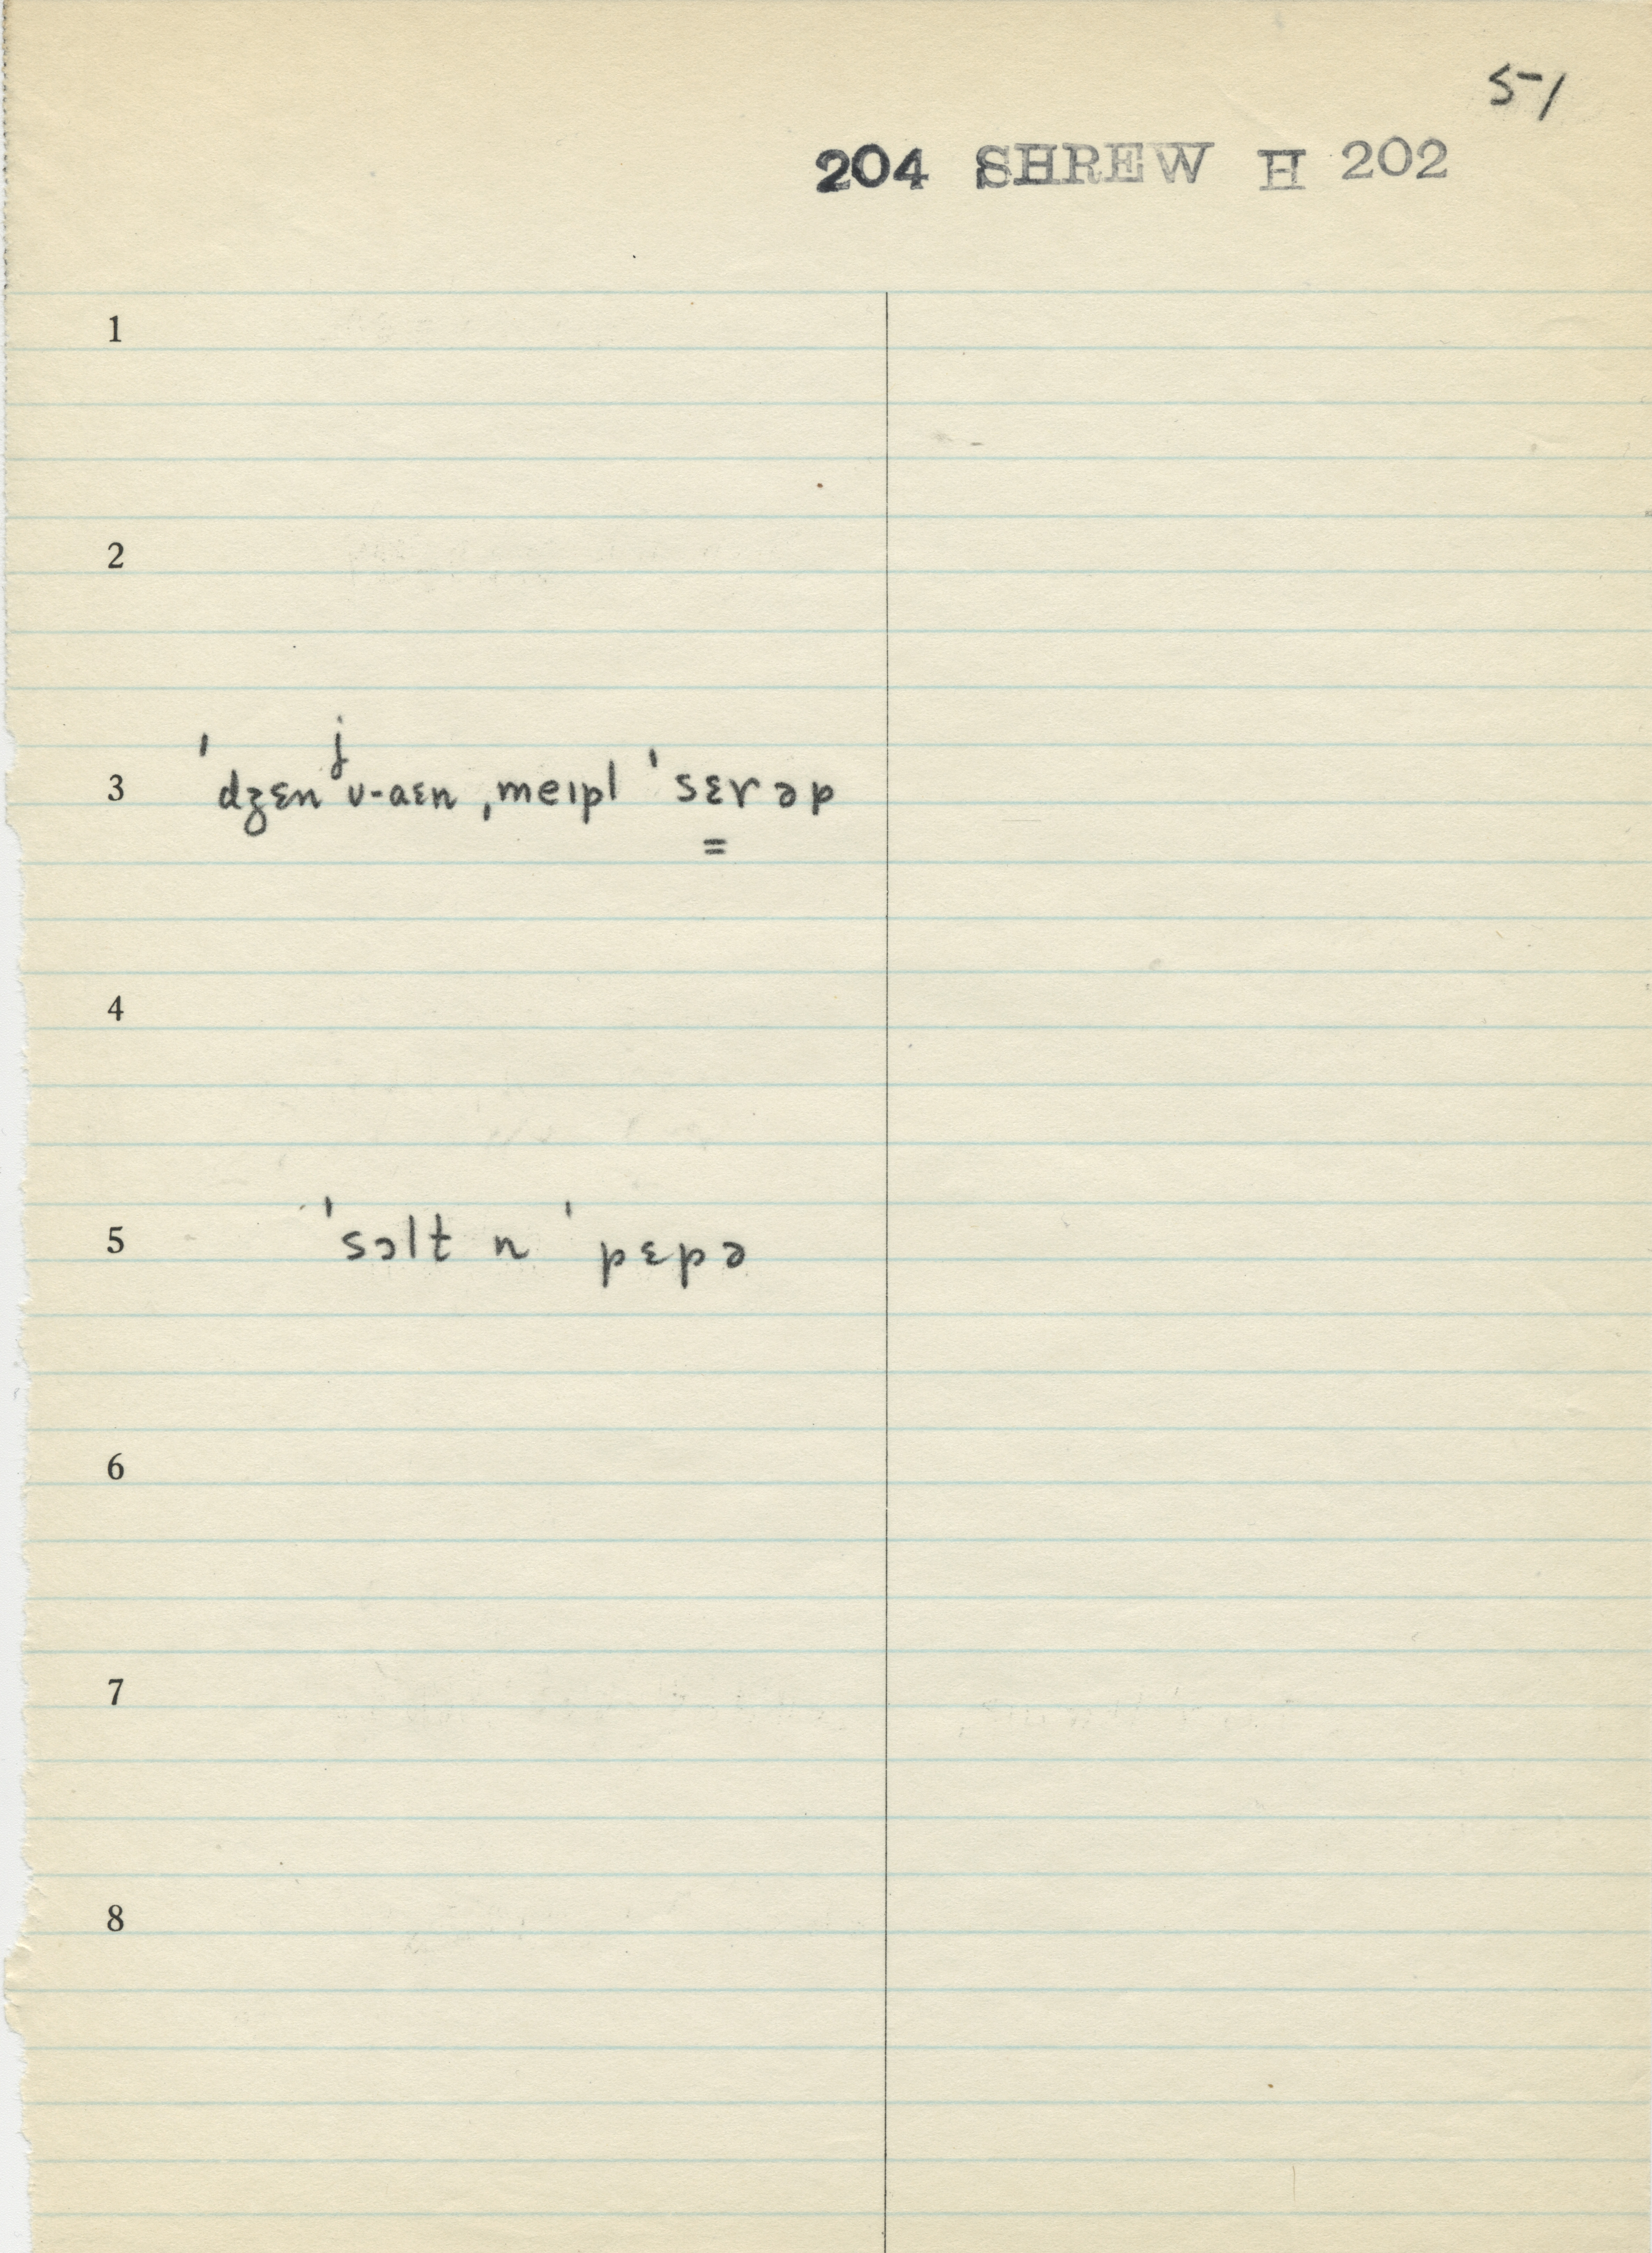 51
204 SHREW H 202
1
2
3 ˈdʒɛnʲʊ-aɛn ˌmeɪpl ˈsɛrəp
4
5 ˈsɔlt n ˈpɛpə
6
7
8